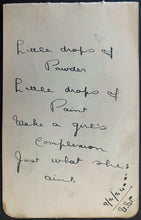 Little drops of
Powder
Little drops of
Paint
Make a girl's
Complexion
Just what she
aint.